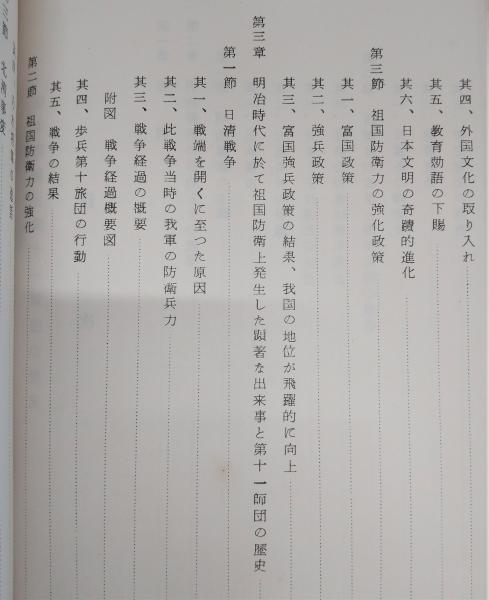 其四、外国文化の取り入れ
其五、教育勅語の下賜
其六、日本文明の奇蹟的進化
第三節 祖国防衛力の強化政策
其一、富国政策
其二、強兵政策
其三、富国強兵政策の結果、我国の地位が飛躍的に向上
第三章 明治時代に於て祖国防衛上発生した顕著な出来事と第十一師団の歴史
第一節 日清戦争
其一、戦端を開くに至つた原因
其二、此戦争当時の我軍の防衛兵力
其三、戦争経過の概要
附図 戦争経過概要図
其四、歩兵第十旅団の行動
其五、戦争の結果
第二節 祖国防衛力の強化